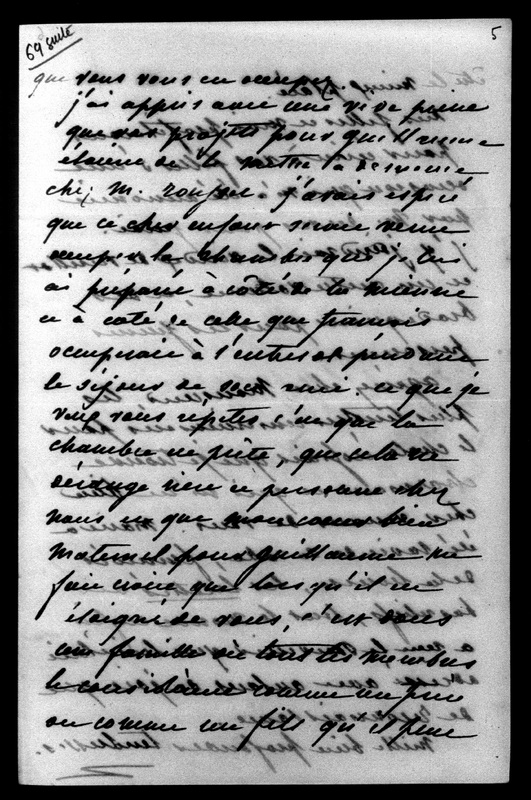 69 suite
5
que vous vous en occupez
j'ai appris avec une vive peine
que vos projets pour Guillaume
étaient de le mettre à
chez M. j'avais espéré
que ce cher enfant serait venu
occuper la chambre que je lui
ai préparé à côté de la mienne
et à coté de celle que francois
occupait à l'entresol pendant
le séjour de ce que je
vous répéter c'est que la
chambre est prête, que cela ne
dérange rien ni personne chez
nous et que mon coeur bien
maternel pour Guillaume me
fait croire que lors qu'il est
éloigné de vous, c'est dans
une famille où tous les membres
le considèrent comme un frère
ou comme un fils qu'il peut